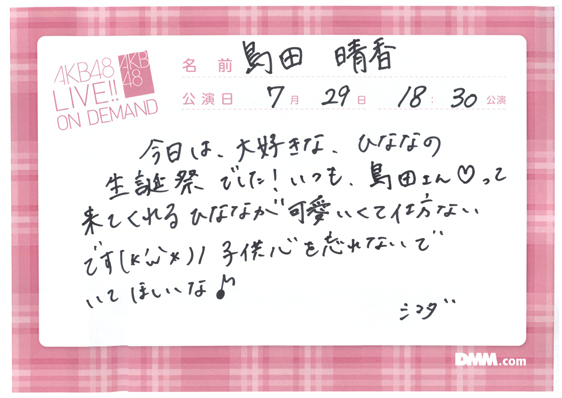 AKB48
LIVE!!
ON DEMAND
AKB
48
名前 島田 晴香
公演日 7月 29日 18:30公演
今日は、大好きな、ひななの
生誕祭でした!いつも、島田さん♡って
来てくれるひななが可愛いくて仕方ない
です(*'ω'*)ノ子供心を忘れないで
いてほしいな♪
シマダ"
DMM.com